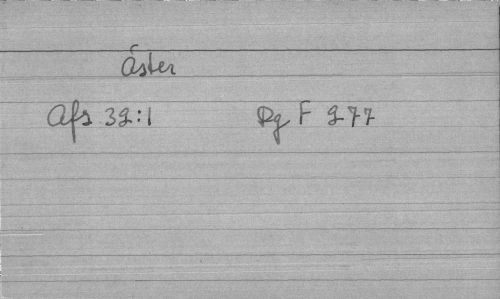 Åster
Afs 32:1 Rg F 277